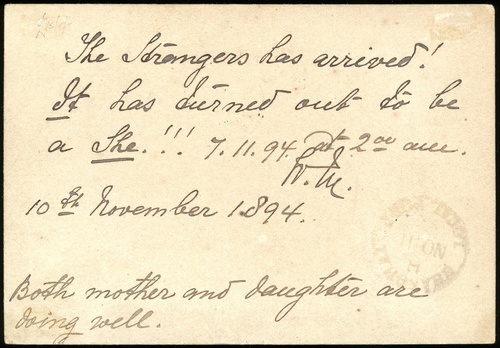 The Strangers has arrived!
It has turned out to be
a She.!!! 7.11.94 at 2.00 am.
W.M.
10th November 1894.
Both mother and daughter are
doing well.